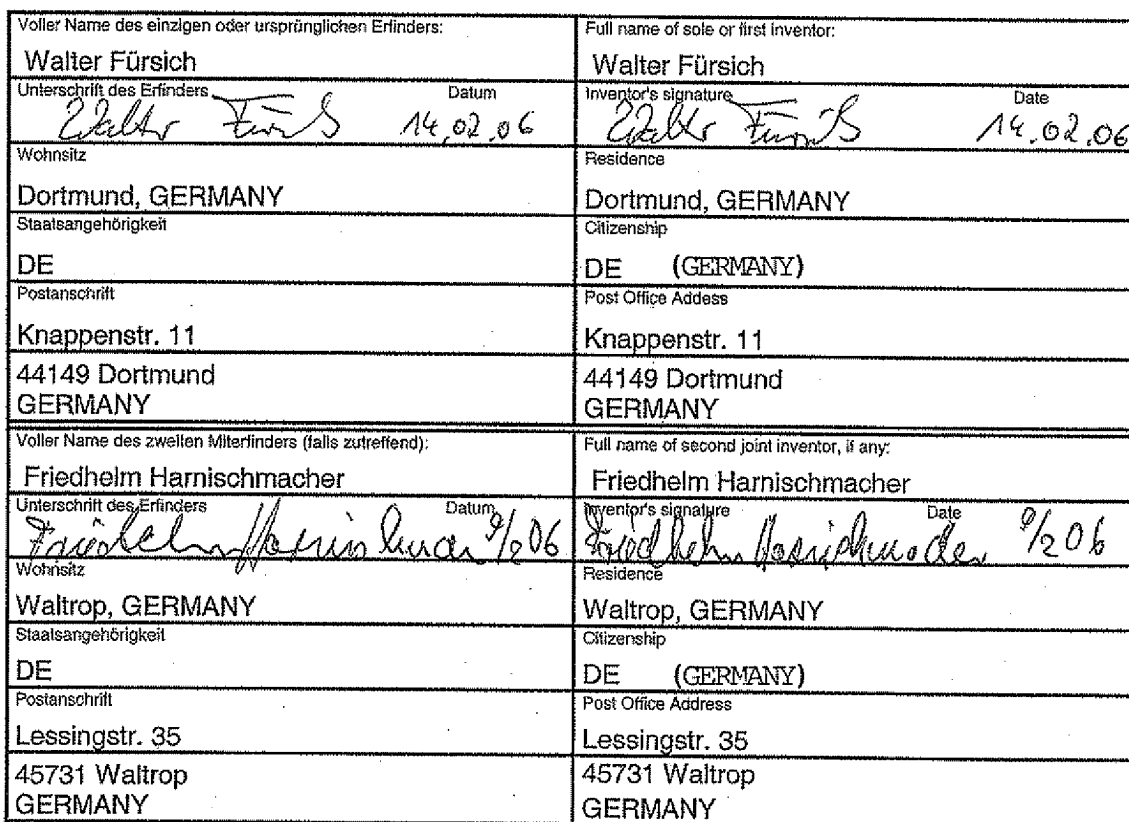 Voller Name des einzigen oder ursprünglichen Erfinders:
Walter Fürsich
Unterschrift des Erfinders Datum
Walter 14.02.06
Wohnsitz
Dortmund, GERMANY
Staatsangehörigkeit
DE
Postanschrift
Knappenstr. 11
44149 Dortmund
GERMANY
Voller Name des zweiten Miterfinders (falls zutreffend):
Friedhelm Harnischmacher
Unterschrift des Erfinders Datum
Friedhelm Harnischmacher 9/2 06
Wohnsitz
Waltrop, GERMANY
Staatsangehörigkeit
DE
Postanschrift
Lessingstr. 35
45731 Waltrop
GERMANY
Full name of sole or first inventor:
Walter Fürsich
Inventor's signature Date
Walter 14.02.06
Residence
Dortmund, GERMANY
Citizenship
DE (GERMANY)
Post Office Addess
Knappenstr. 11
44149 Dortmund
GERMANY
Full name of second joint inventor, if any:
Friedhelm Harnischmacher
Inventor's signature Date
Friedhelm Harnischmacher 9/2 06
Residence
Waltrop, GERMANY
Citizenship
DE (GERMANY)
Post Office Address
Lessingstr. 35
45731 Waltrop
GERMANY